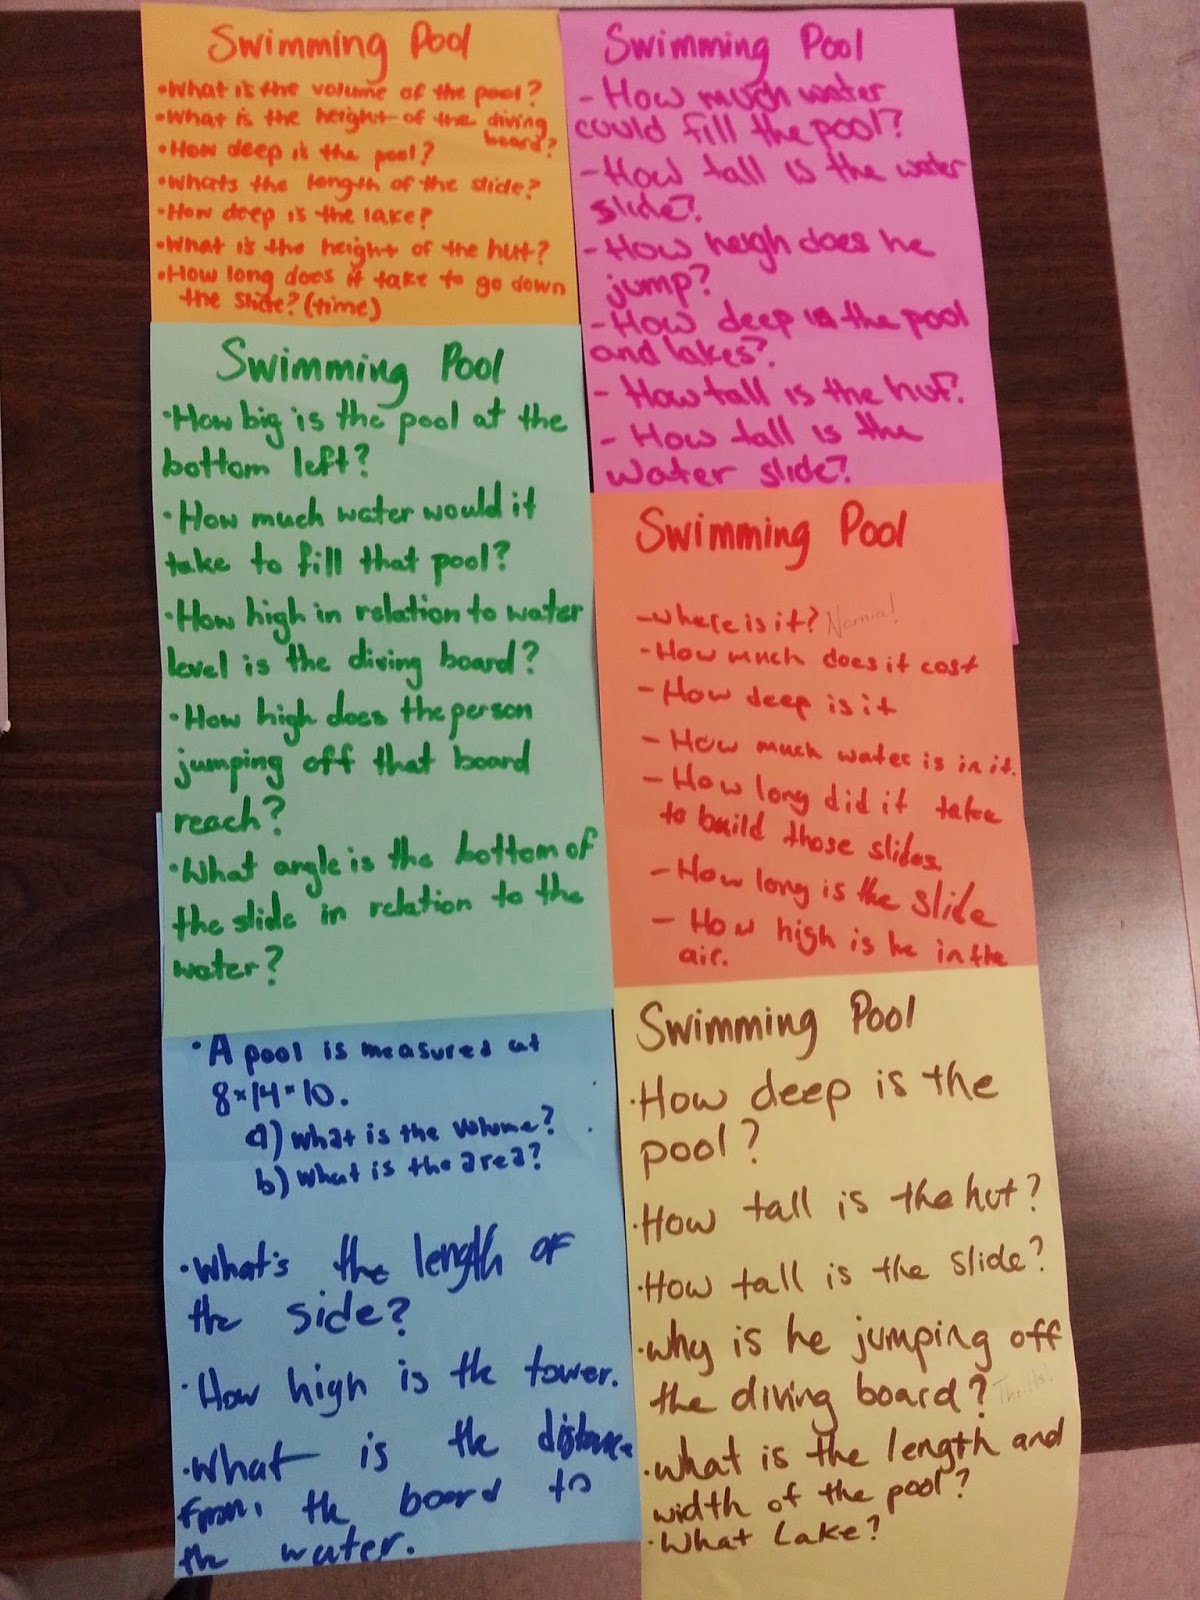 Swimming Pool
•What is the volume of the pool?
•What is the height of the diving
board?
•How deep is the pool?
•Whats the length of the slide?
•How deep is the lake?
•What is the height of the hut?
•How long does it take to go down
the slide? (time)
Swimming Pool
- How much water
could fill the pool?
- How tall is the water
slide?
- How heigh does he
jump?
- How deep is the pool
and lakes?
- How tall is the hut?
- How tall is the
water slide?
Swimming Pool
•How big is the pool at the
bottom left?
•How much water would it
take to fill that pool?
•How high in relation to water
level is the diving board?
•How high does the person
jumping off that board
reach?
•What angle is the bottom of
the slide in relation to the
water?
Swimming Pool
-Where is it? Narnia!
-How much does it cost
-How deep is it
- How much water is in it.
- How long did it take
to build those slides
- How long is the slide
- How high is he in the
air.
•A pool is measured at
8×14×10.
a) what is the volume?
b) what is the area?
•What's the length of
the side?
•How high is the tower.
•What is the distance
from the board to
the water.
Swimming Pool
•How deep is the
pool?
•How tall is the hut?
•How tall is the slide?
•why is he jumping off
the diving board? Thrills!
•what is the length and
width of the pool?
•What Lake?